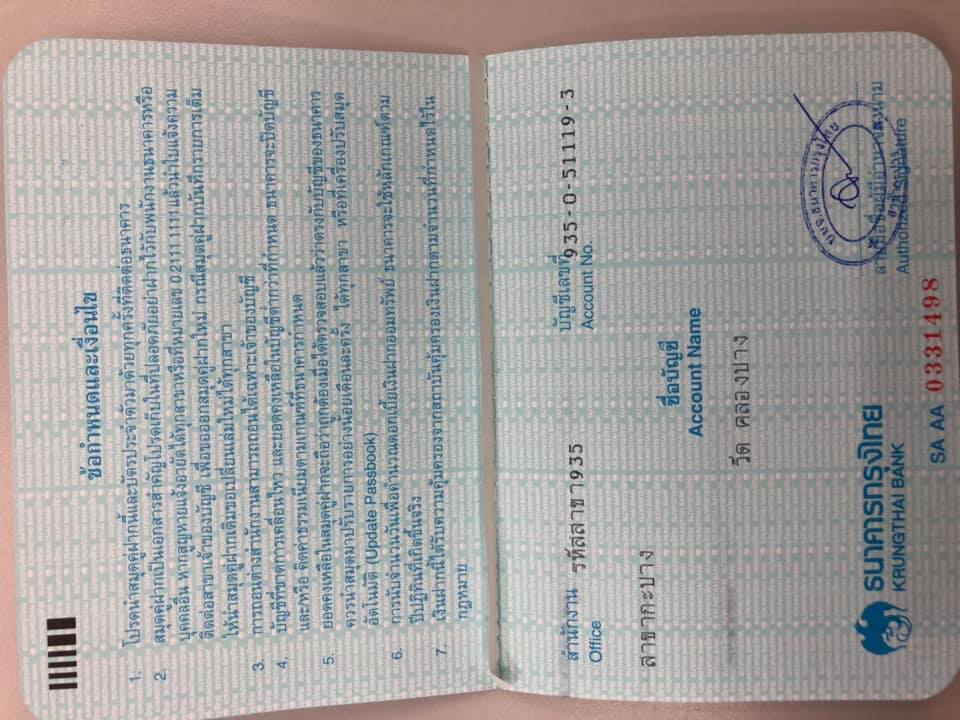 ข้อกำหนดและเงื่อนไข
1. โปรดนำสมุดคู่ฝากนี้และบัตรประจำตัวมาด้วยทุกครั้งที่ติดต่อธนาคาร
2. สมุดคู่ฝากเป็นเอกสารสำคัญโปรดเก็บในที่ปลอดภัยอย่าฝากไว้กับพนักงานธนาคารหรือ
บุคคลอื่น หากสูญหายแจ้งอายัดได้ทุกสาขาหรือที่หมายเลข 0 2111 1111 แล้วนำใบแจ้งความ
ติดต่อสาขาเจ้าของบัญชี เพื่อขอออกสมุดคู่ฝากใหม่ กรณีสมุดคู่ฝากบันทึกรายการเต็ม
ให้นำสมุดคู่ฝากเดิมขอเปลี่ยนเล่มใหม่ได้ทุกสาขา
3. การถอนต่างสำนักงานสามารถถอนได้เฉพาะเจ้าของบัญชี
4. บัญชีที่ขาดการเคลื่อนไหว และยอดคงเหลือในบัญชีต่ำกว่าที่กำหนด ธนาคารจะปิดบัญชี
และ/หรือ คิดค่าธรรมเนียมตามเกณฑ์ที่ธนาคารกำหนด
5. ยอดคงเหลือในสมุดคู่ฝากจะถือว่าถูกต้องเมื่อได้ตรวจสอบแล้วว่าตรงกับบัญชีของธนาคาร
ควรนำสมุดมาปรับรายการอย่างน้อยเดือนละครั้ง ได้ทุกสาขา หรือที่เครื่องปรับสมุด
อัตโนมัติ (Update Passbook)
6. การนับจำนวนวันเพื่อคำนวณดอกเบี้ยเงินฝากออมทรัพย์ ธนาคารจะใช้หลักเกณฑ์ตาม
ปีปฏิทินที่เกิดขึ้นจริง
7. เงินฝากนี้ได้รับความคุ้มครองจากสถาบันคุ้มครองเงินฝากตามจำนวนที่กำหนดไว้ใน
กฎหมาย
สำนักงาน รหัสสาขา935
Office
บัญชีเลขที่ 935-0-51119-3
Account No.
สาขากะปาง
ชื่อบัญชี
Account Name
วัด คลองปาง
บมจ.ธนาคารกรุงไทย
สาขากะปาง
ลายมือชื่อผู้มีอำนาจลงนาม
Authorized Signature
ธนาคารกรุงไทย
KRUNGTHAI BANK
SA AA 0331498